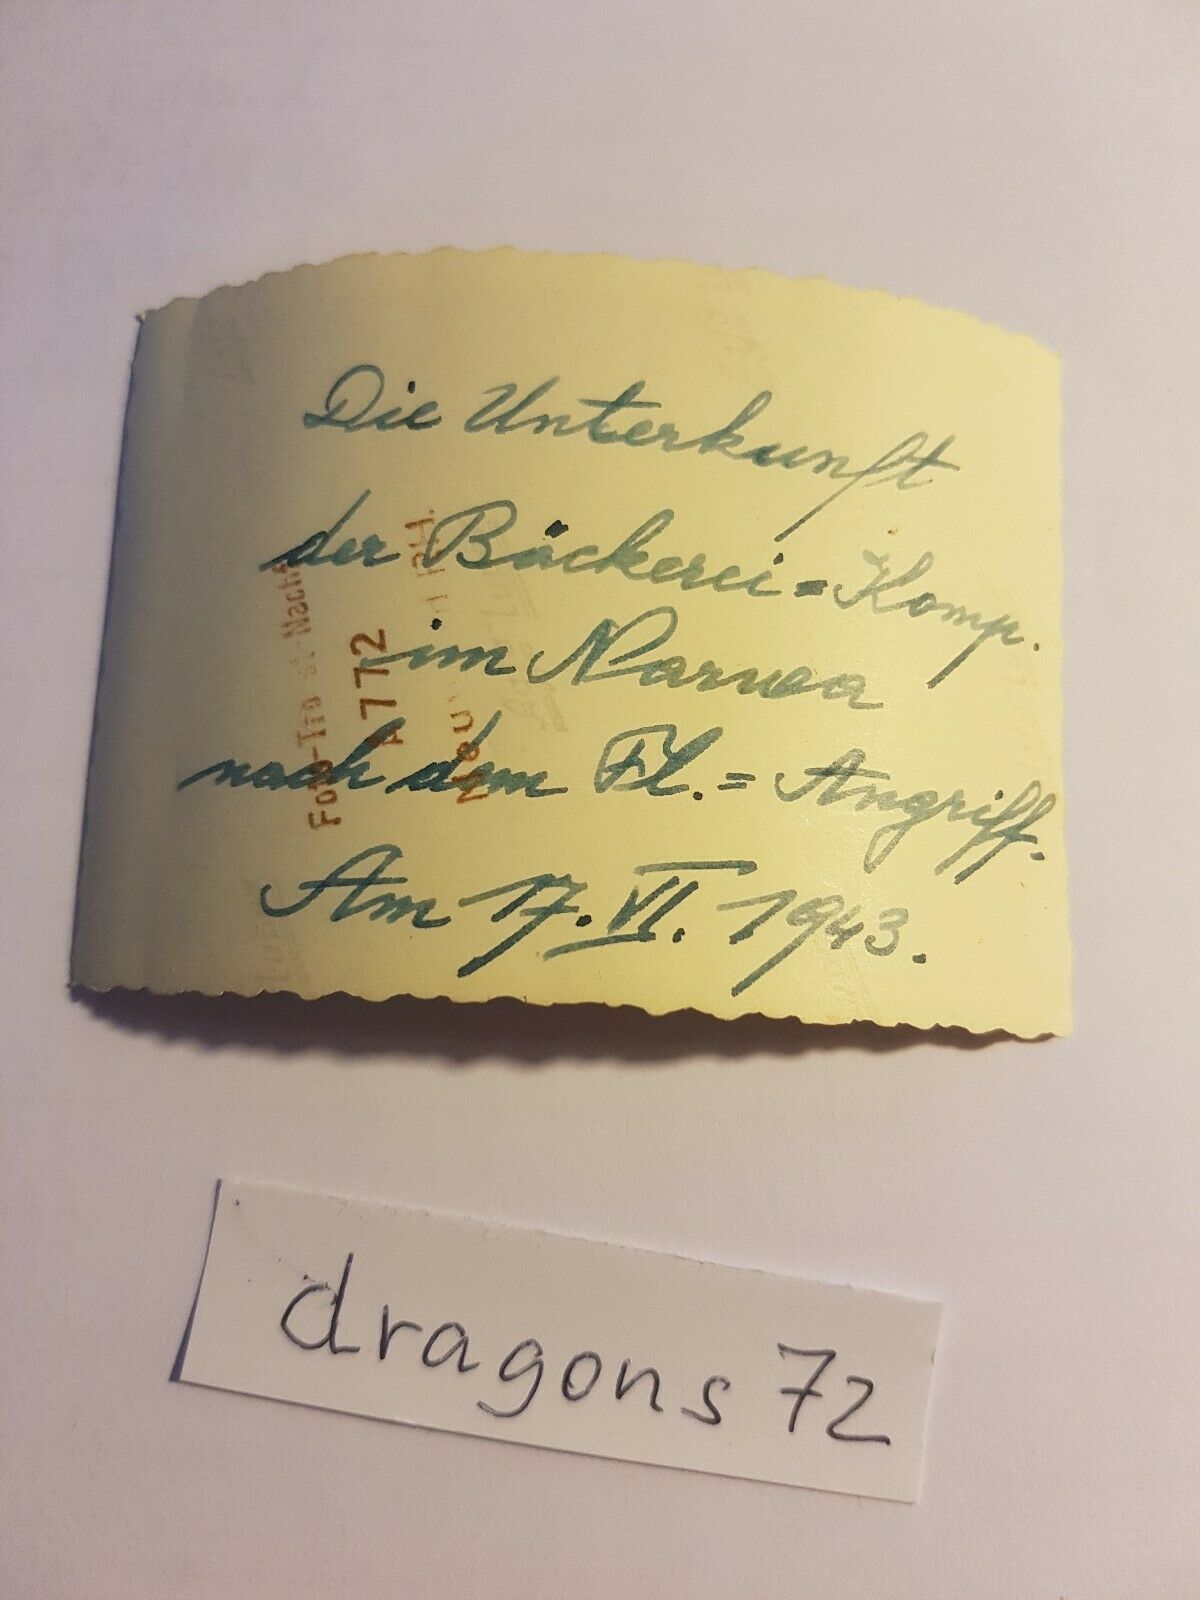 Die Unterkunft
der Bäckerei=Komp.
im Narwa
nach dem Fl.= Angriff.
Am 17. VI. 1943.
A 772
dragons 72